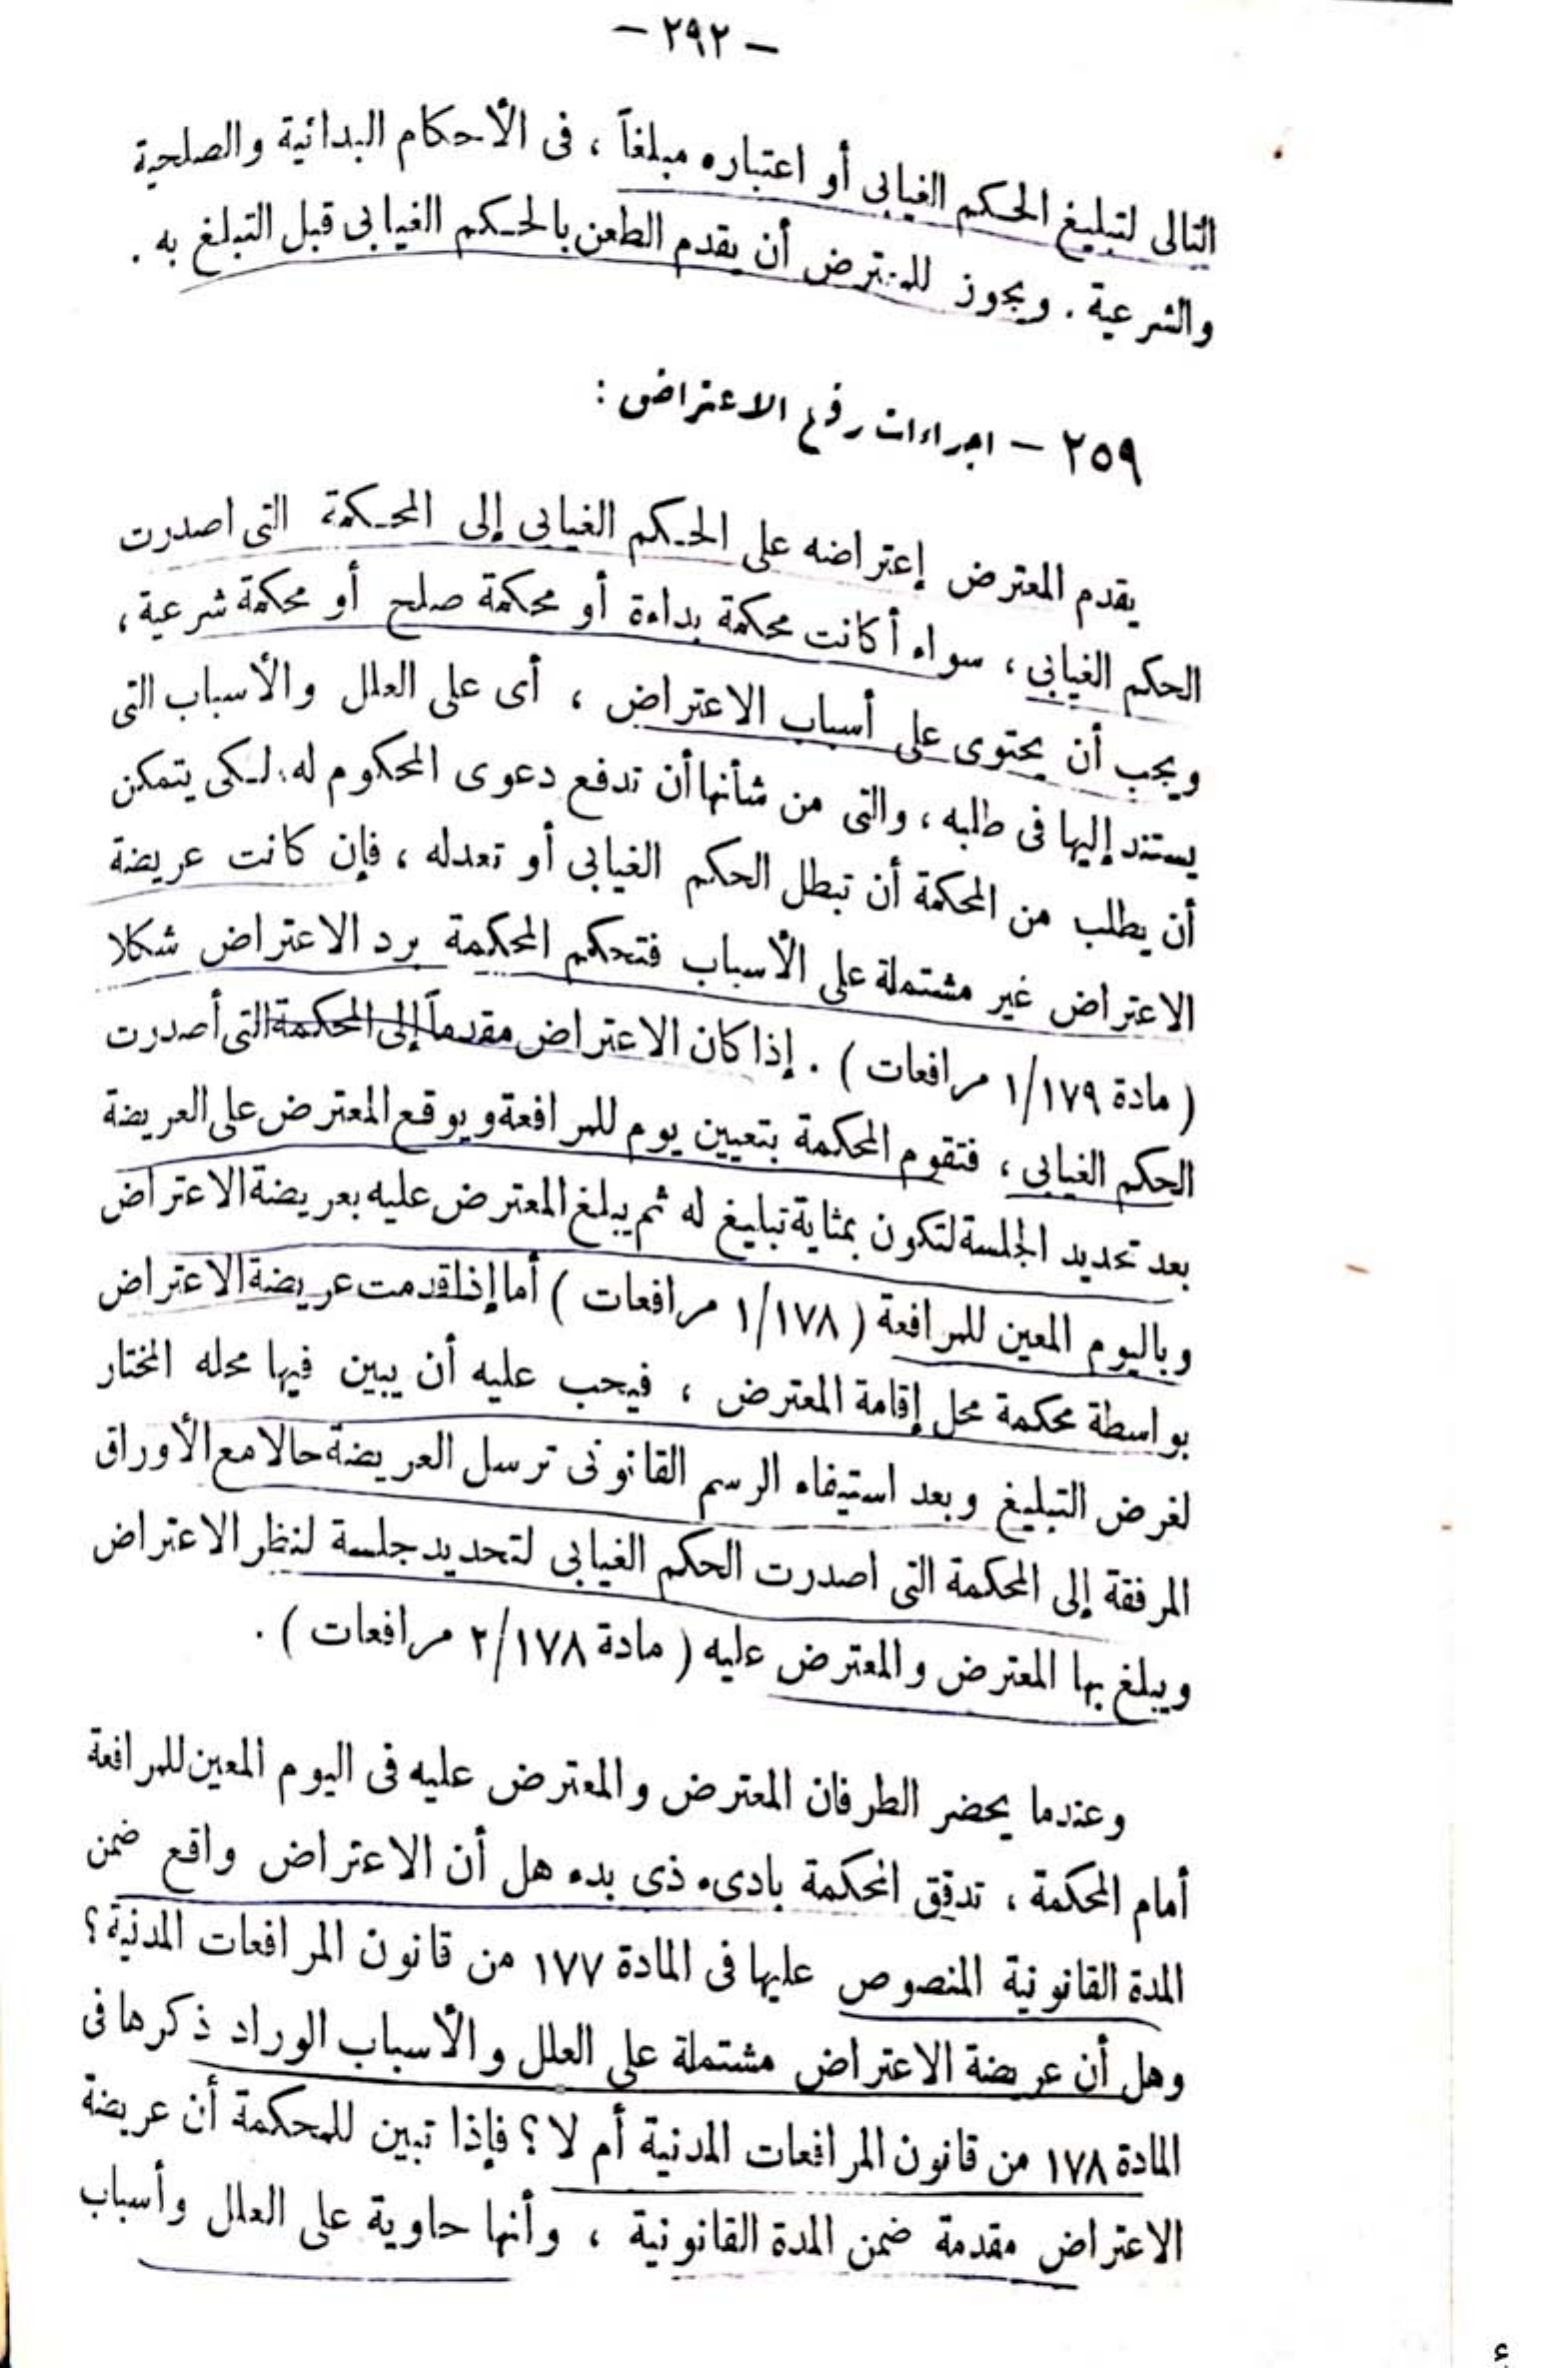 — ٢٩٢ —
التالى لتبليغ الحكم الغيابى أو اعتباره مبلغاً ، فى الأحكام البدائية والصلحية
والشرعية . ويجوز للمعترض أن يقدم الطعن بالحكم الغيابى قبل التبلغ به .
٢٥٩ — اجراءات رفع الاعتراض :
يقدم المعترض إعتراضه على الحكم الغيابى إلى المحكمة التى اصدرت
الحكم الغيابى ، سواء أكانت محكمة بداءة أو محكمة صلح أو محكمة شرعية ،
ويجب أن يحتوى على أسباب الاعتراض ، أى على العلل والأسباب التى
يستند إليها فى طلبه ، والتى من شأنها أن تدفع دعوى المحكوم له ، لكى يتمكن
أن يطلب من المحكمة أن تبطل الحكم الغيابى أو تعدله ، فإن كانت عريضة
الاعتراض غير مشتملة على الأسباب فتحكم المحكمة برد الاعتراض شكلا
( مادة ١/١٧٩ مرافعات ) . إذا كان الاعتراض مقدماً إلى المحكمة التى أصدرت
الحكم الغيابى ، فتقوم المحكمة بتعيين يوم للمرافعة ويوقع المعترض على العريضة
بعد تحديد الجلسة لتكون بمثاية تبليغ له ثم يبلغ المعترض عليه بعريضة الاعتراض
وباليوم المعين للمرافعة ( ١/١٧٨ مرافعات ) أما إذا قدمت عريضة الاعتراض
بواسطة محكمة محل إقامة المعترض ، فيحب عليه أن يبين فيها محله المختار
لغرض التبليغ وبعد استيفاء الرسم القانونى ترسل العريضة حالا مع الأوراق
المرفقة إلى المحكمة التى اصدرت الحكم الغيابى لتحديد جلسة لنظر الاعتراض
ويبلغ بها المعترض والمعترض عليه ( مادة ٢/١٧٨ مرافعات ) .
وعندما يحضر الطرفان المعترض والمعترض عليه فى اليوم المعين للمرافعة
أمام المحكمة ، تدقق المحكمة بادىء ذى بدء هل أن الاعتراض واقع ضمن
المدة القانونية المنصوص عليها فى المادة ١٧٧ من قانون المرافعات المدنية ؟
وهل أن عريضة الاعتراض مشتملة على العلل والأسباب الوراد ذكرها فى
المادة ١٧٨ من قانون المرافعات المدنية أم لا ؟ فإذا تبين للمحكمة أن عريضة
الاعتراض مقدمة ضمن المدة القانونية ، وأنها حاوية على العلل وأسباب